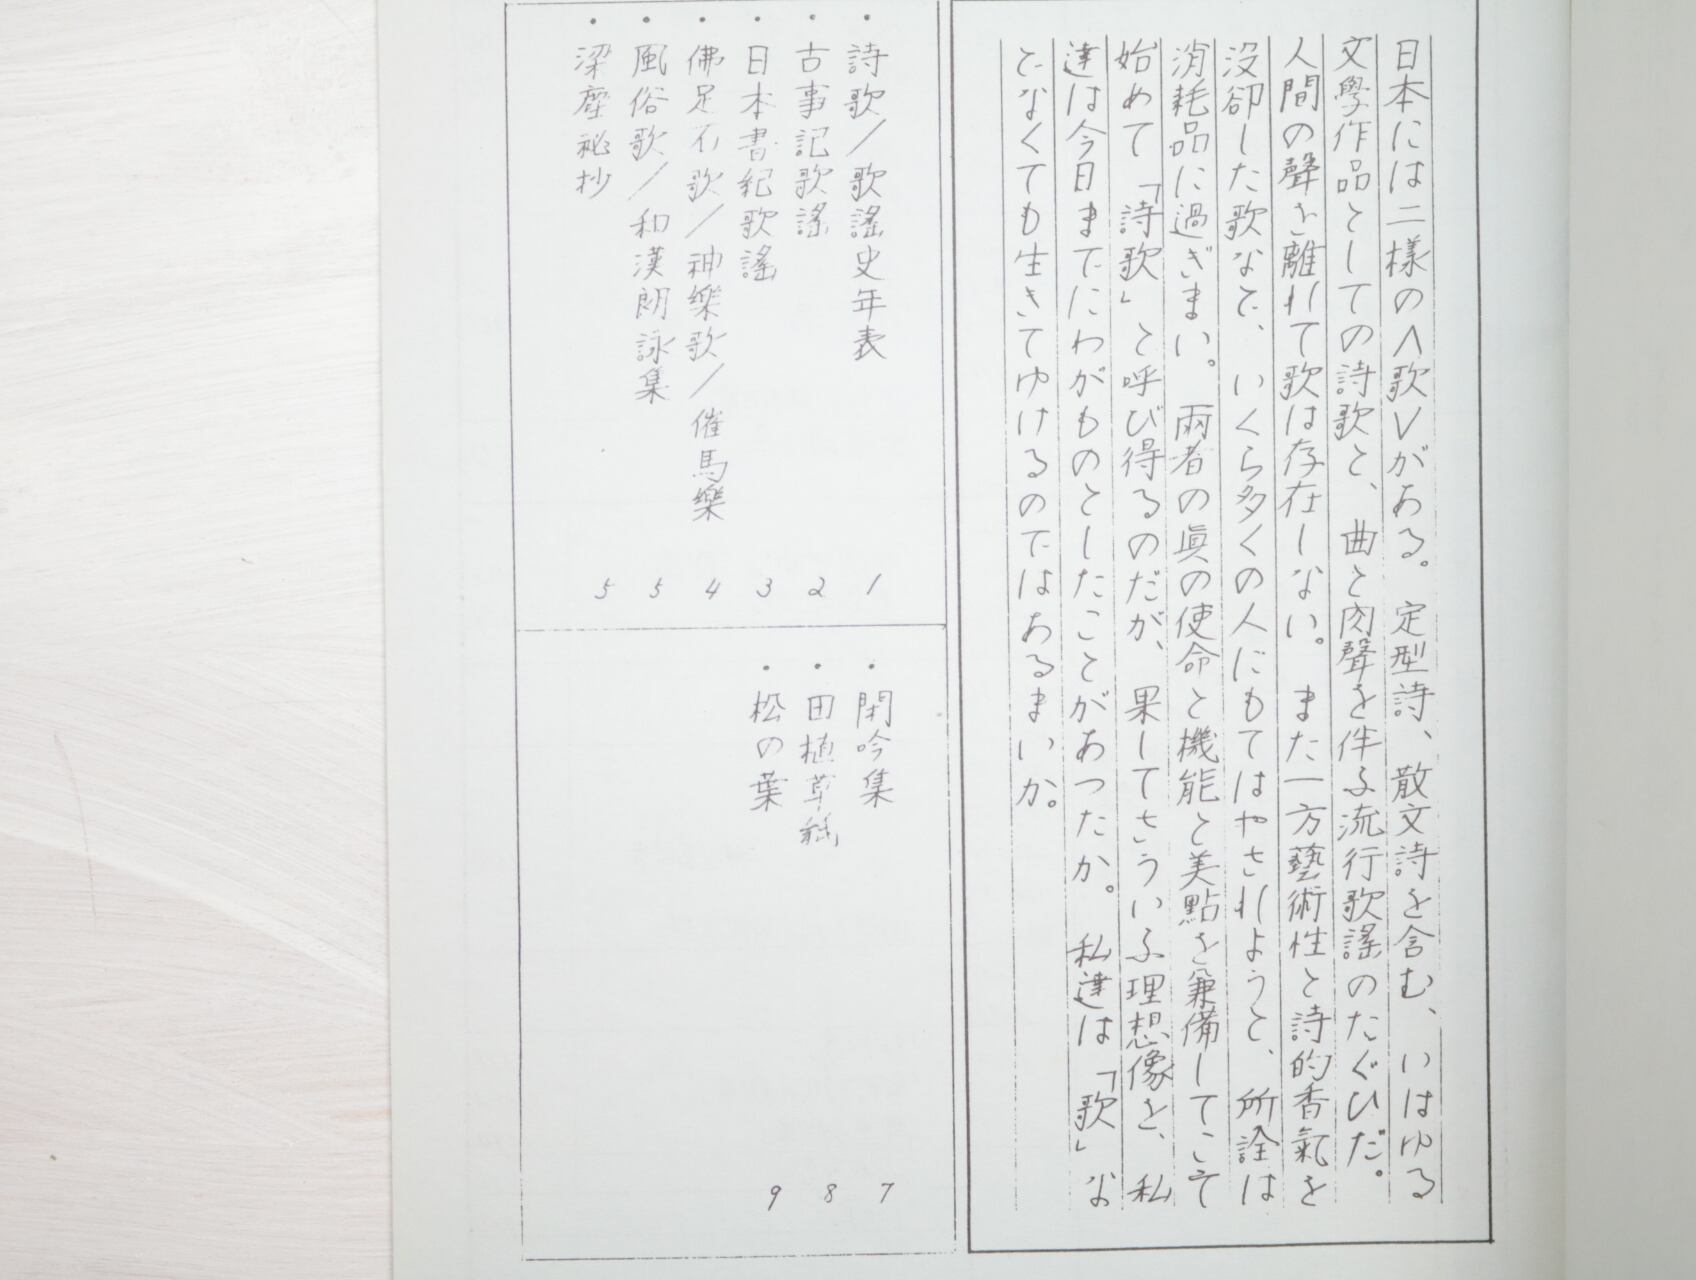 日本には二様の＜歌＞がある。定型詩、散文詩を含む、いはゆる
文學作品としての詩歌と、曲と肉聲を伴ふ流行歌謠のたぐひだ。
人間の聲を離れて歌は存在しない。また一方藝術性と詩的香氣を
沒卻した歌など、いくら多くの人にもてはやされようと、所詮は
消耗品に過ぎまい。兩者の眞の使命と機能と美點を兼備してこそ
始めて「詩歌」と呼び得るのだが、果してさういふ理想像を、私
達は今日までにわがものとしたことがあつたか。私達は「歌」な
どなくても生きてゆけるのではあるまいか。
・詩歌／歌謠史年表 1
・古事記歌謠 2
・日本書紀歌謠 3
・佛足石歌／神樂歌／催馬樂 4
・風俗歌／和漢朗詠集 5
・梁塵祕抄 5
・閑吟集 7
・田植草紙 8
・松の葉 9